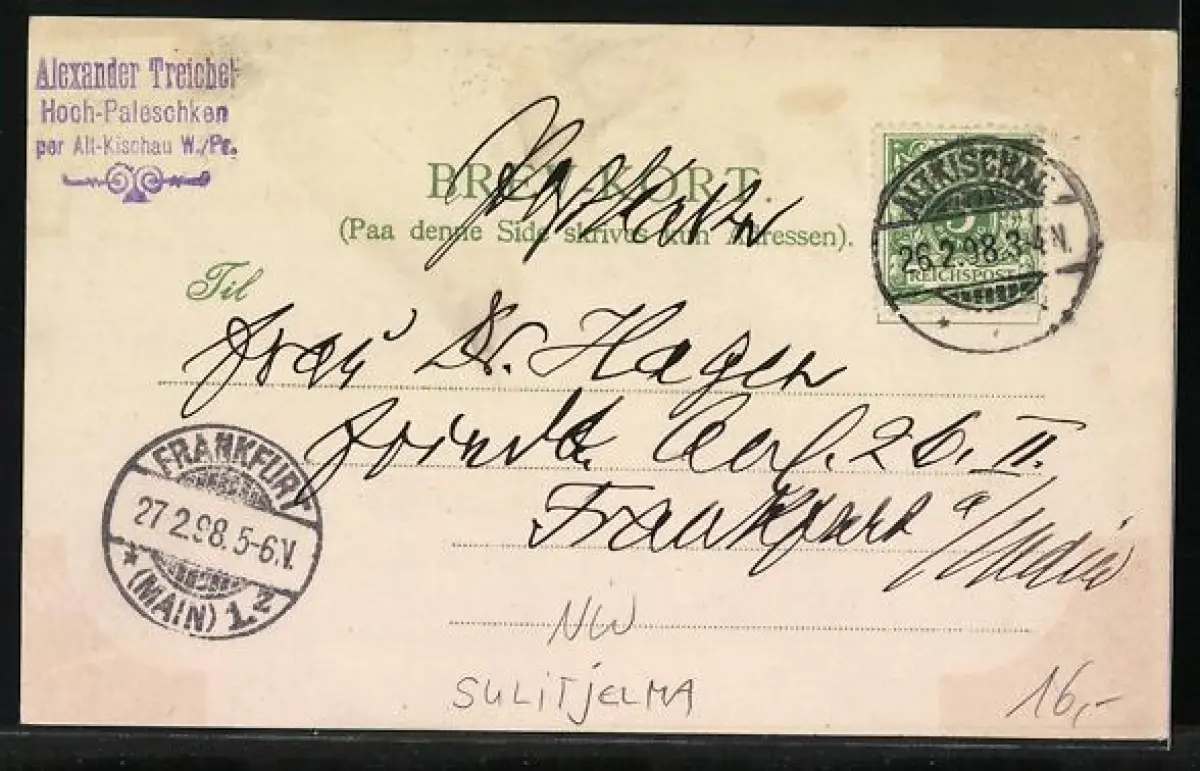 Alexander Treichel
Hoch-Paleschken
per Alt-Kischau W./Pr.
BREV-KORT.
Postkarte
(Paa denne Side skrives kun Adressen).
ALTKISCHAU
26.2.98.3-4N.
5
REICHSPOST
Til
Frau Dr. Hagen
26. II.
Frankfurt a/Main
FRANKFURT
27.2.98.5-6.V.
* (MAIN) 1.z
NW
SULITJELMA
16,-